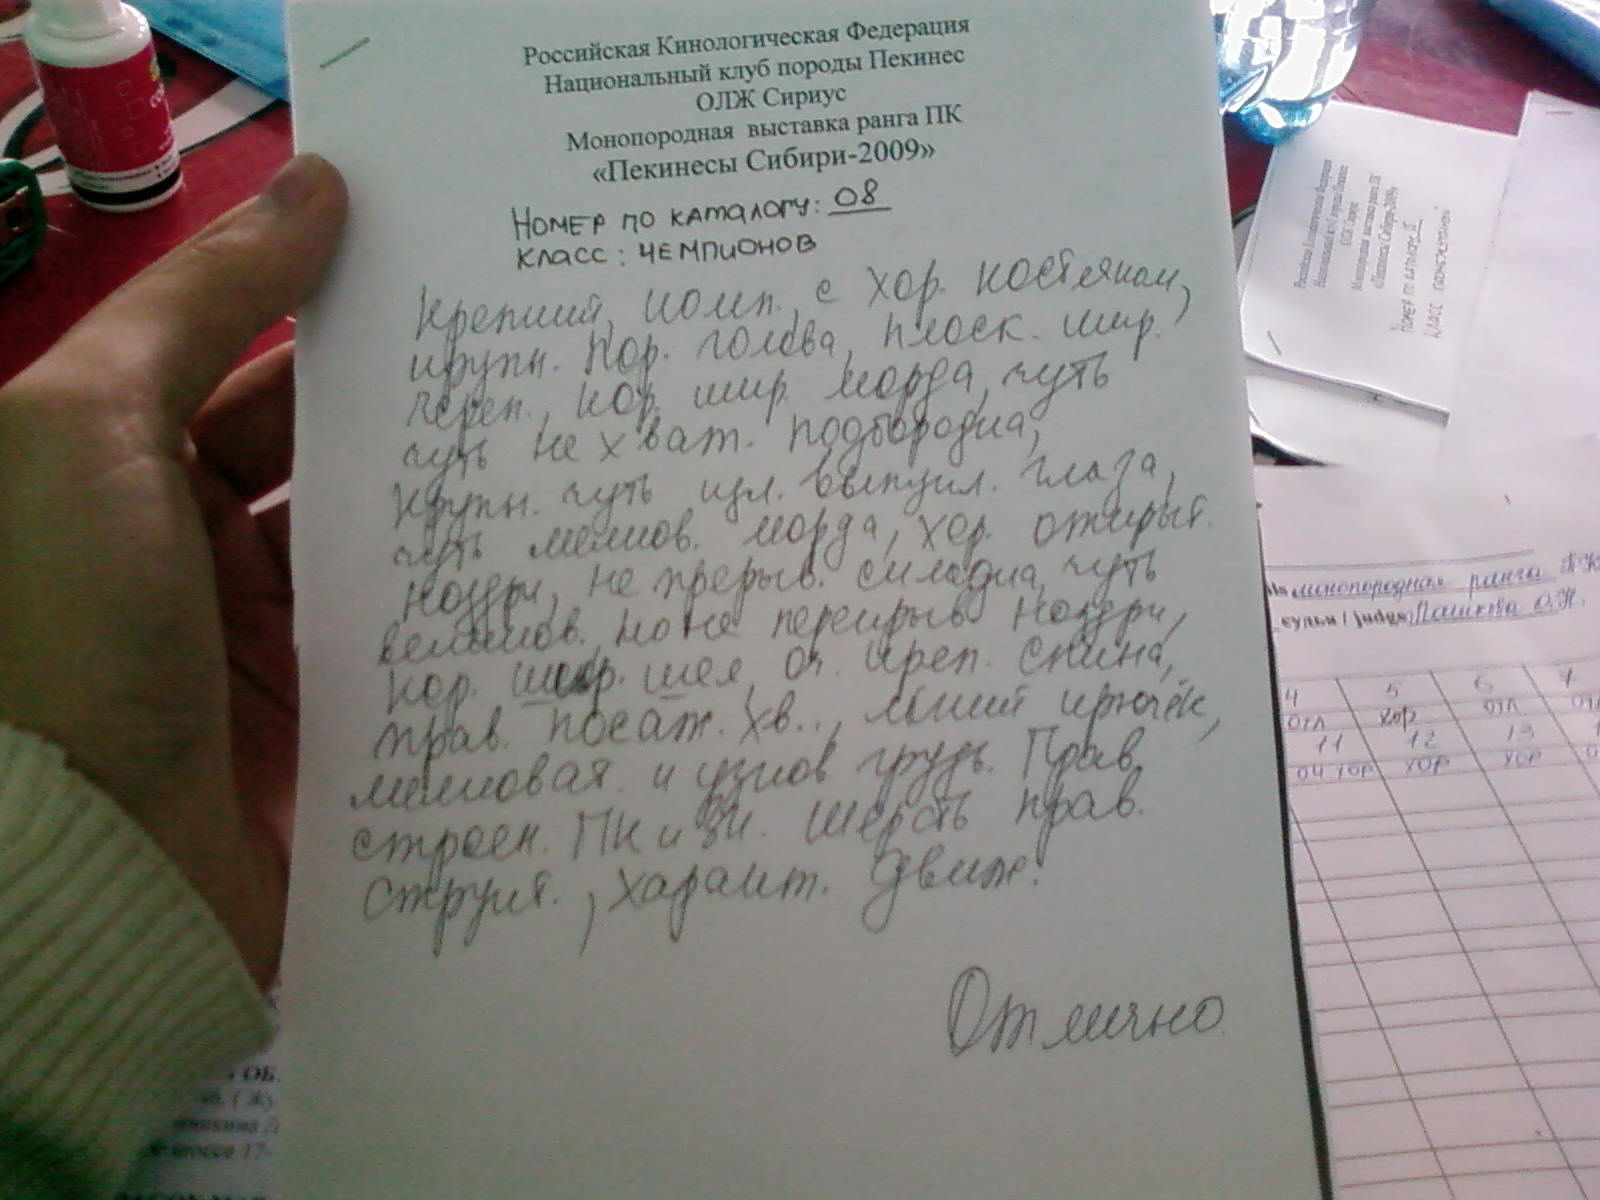 Российская Кинологическая Федерация
Национальный клуб породы Пекинес
ОЛЖ Сириус
Монопородная выставка ранга ПК
«Пекинесы Сибири-2009»
Номер по каталогу: 08
Класс: чемпионов
Крепкий, комп., с хор. костяком,
крупн. Кор. голова, плоск. шир.
череп., кор. шир. морда, чуть
чуть не хват. подбородка,
Крупн. чуть изл. выпукл. глаза,
чуть мелков. морда, хор. открыт.
ноздри, не прерыв. складка, чуть
великов. но не перекрыв. ноздри,
кор. шир. шея, оч. креп. спина,
прав. посаж. хв..,
крючёк,
мелковая и узков грудь. Прав.
строен. ПК и ЗК. Шерсть прав.
структ., характ. движ.
Отлично
Российская Кинологическая Федерация
Национальный клуб породы Пекинес
ОЛЖ Сириус
Монопородная выставка ранга ПК
«Пекинесы Сибири-2009»
Номер по каталогу
Класс
монопородная ранга ПК
судья / judge Пашкова О.Ж.
4 5 6 7
отл хор отл
11 12 13
оч хор хор хор